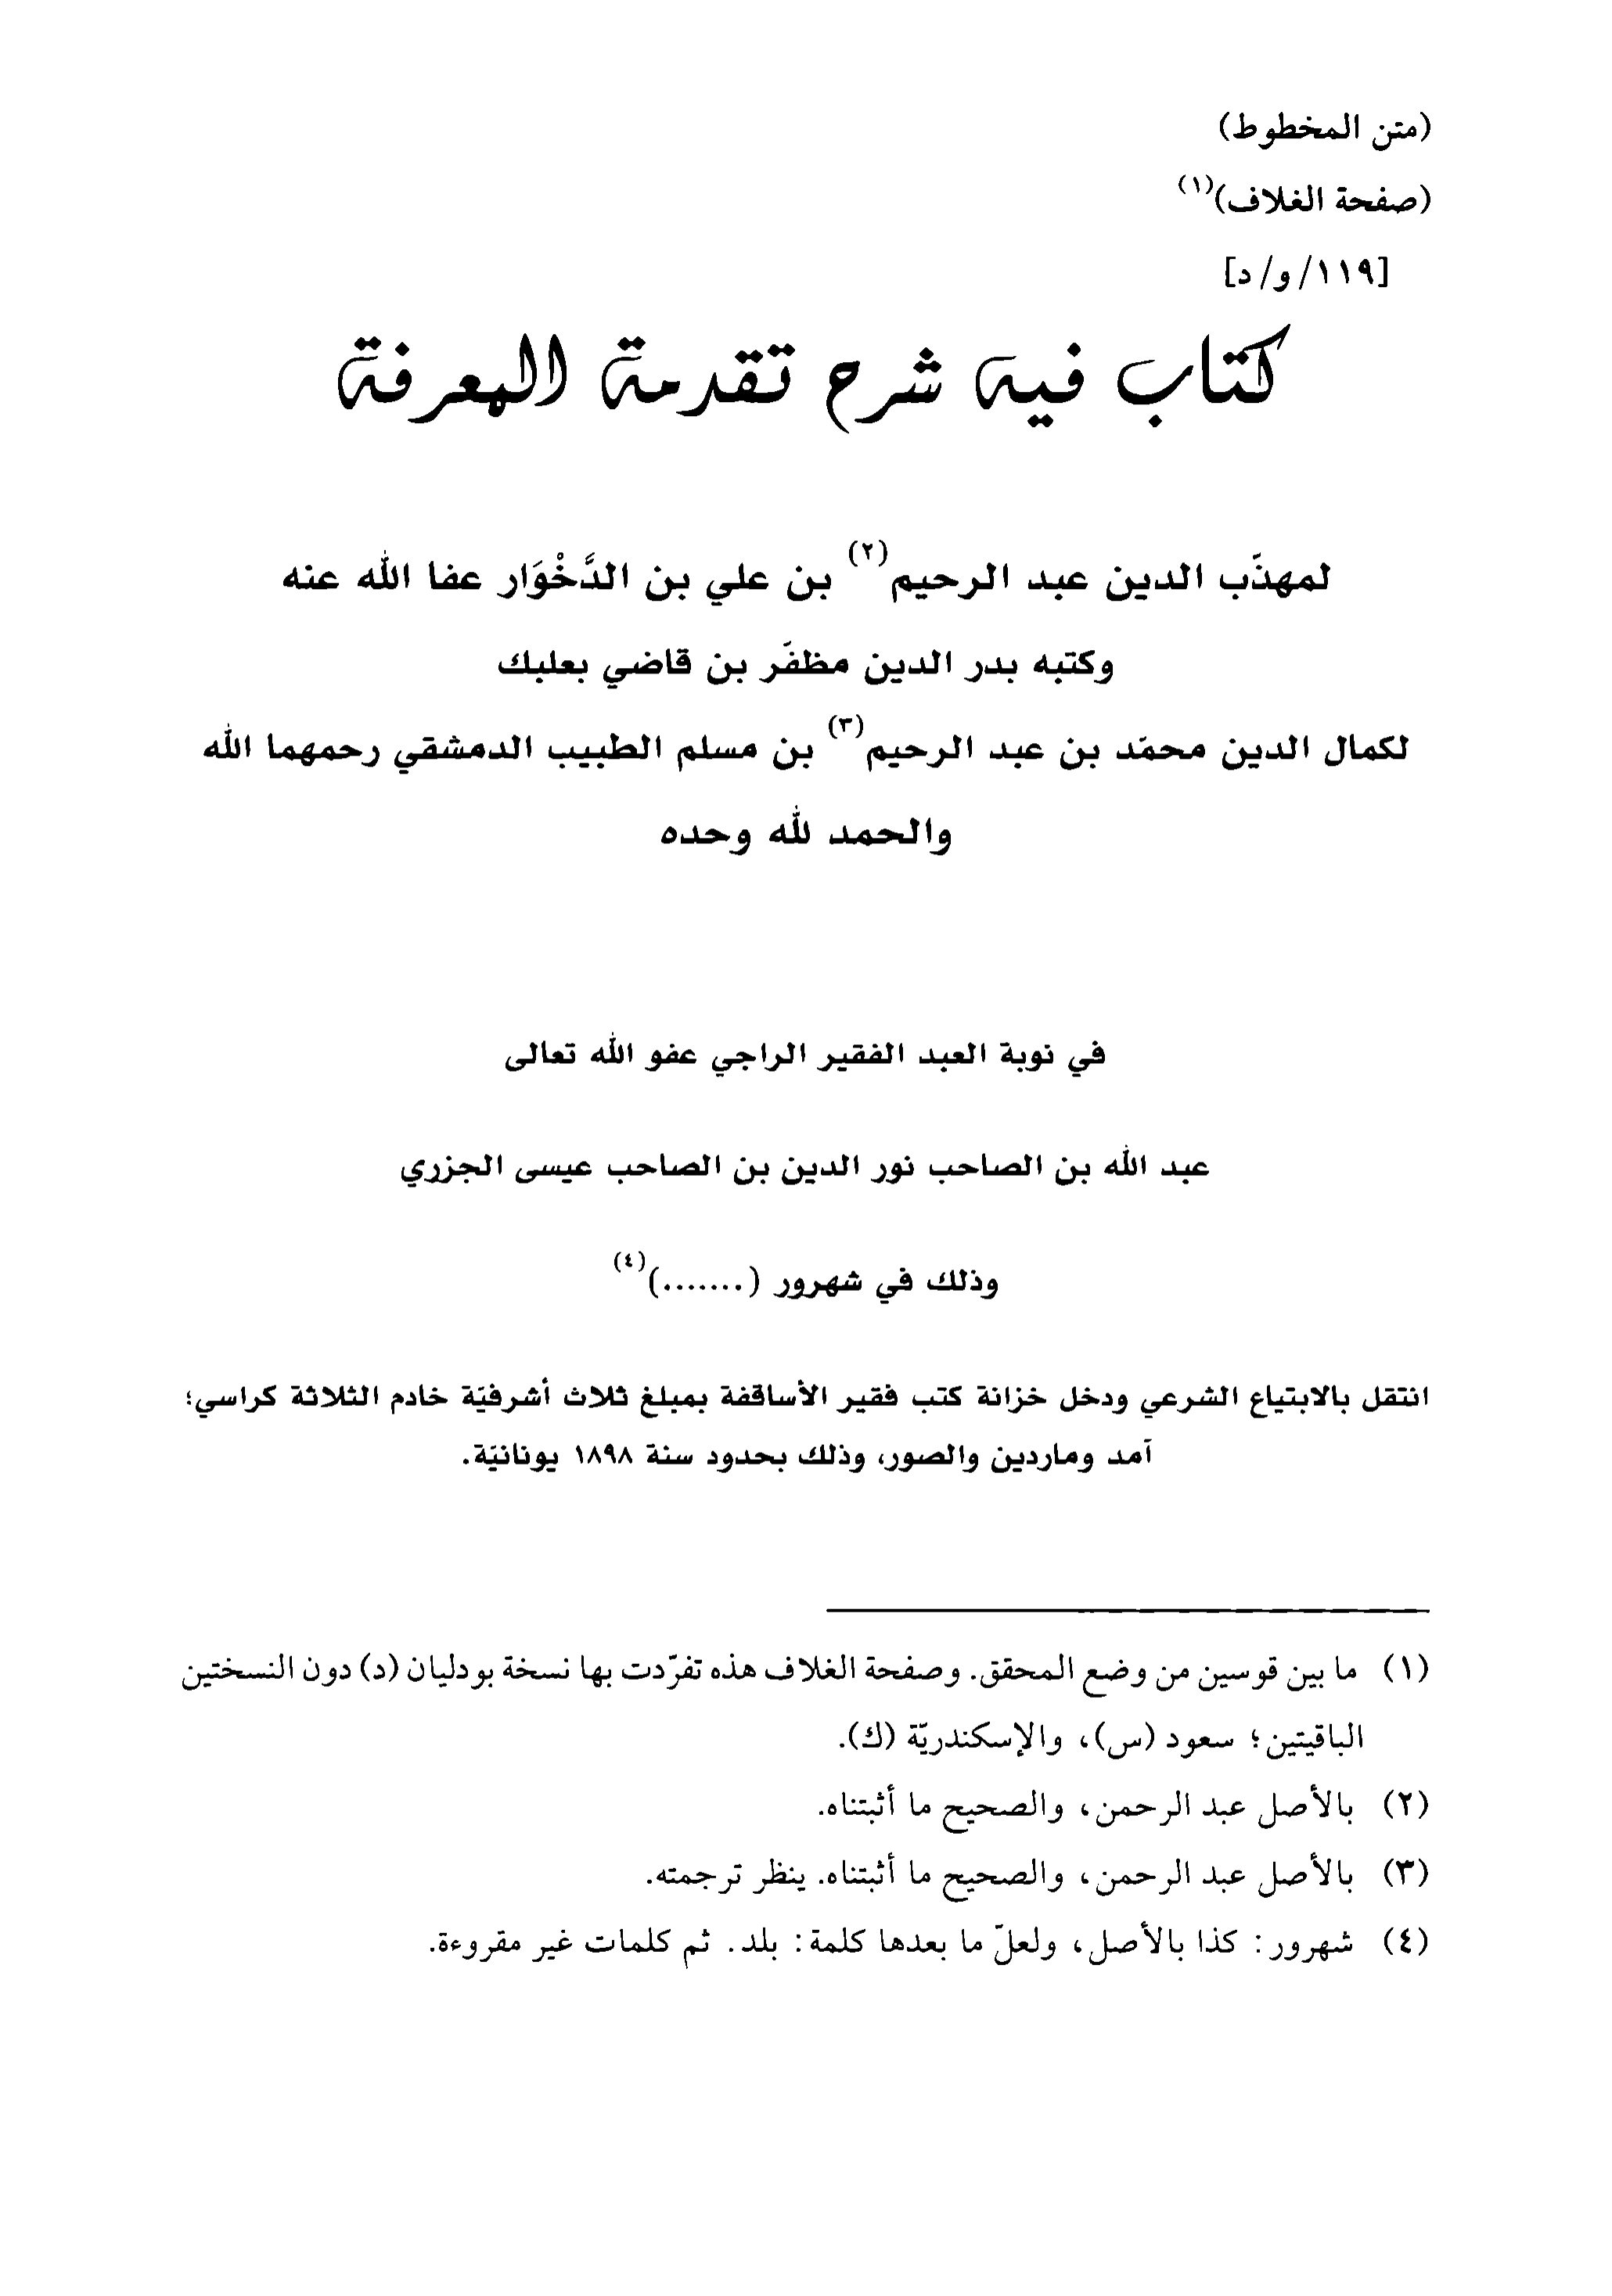 (متن المخطوط)
(صفحة الغلاف)(١)
[١١٩/ و/ د]
كتاب فيه شرح تقدمة المعرفة
لمهذّب الدين عبد الرحيم(٢) بن علي بن الدَّخْوَار عفا الله عنه
وكتبه بدر الدين مظفّر بن قاضي بعلبك
لكمال الدين محمّد بن عبد الرحيم(٣) بن مسلم الطبيب الدمشقي رحمهما الله
والحمد لله وحده
في نوبة العبد الفقير الراجي عفو الله تعالى
عبد الله بن الصاحب نور الدين بن الصاحب عيسى الجزري
وذلك في شهرور (.......)(٤)
انتقل بالابتياع الشرعي ودخل خزانة كتب فقير الأساقفة بمبلغ ثلاث أشرفيّة خادم الثلاثة كراسي؛
آمد وماردين والصور، وذلك بحدود سنة ١٨٩٨ يونانيّة.
(١) ما بين قوسين من وضع المحقق. وصفحة الغلاف هذه تفرّدت بها نسخة بودليان (د) دون النسختين
الباقيتين؛ سعود (س)، والإسكندريّة (ك).
(٢) بالأصل عبد الرحمن، والصحيح ما أثبتناه.
(٣) بالأصل عبد الرحمن، والصحيح ما أثبتناه. ينظر ترجمته.
(٤) شهرور: كذا بالأصل، ولعلّ ما بعدها كلمة: بلد. ثم كلمات غير مقروءة.